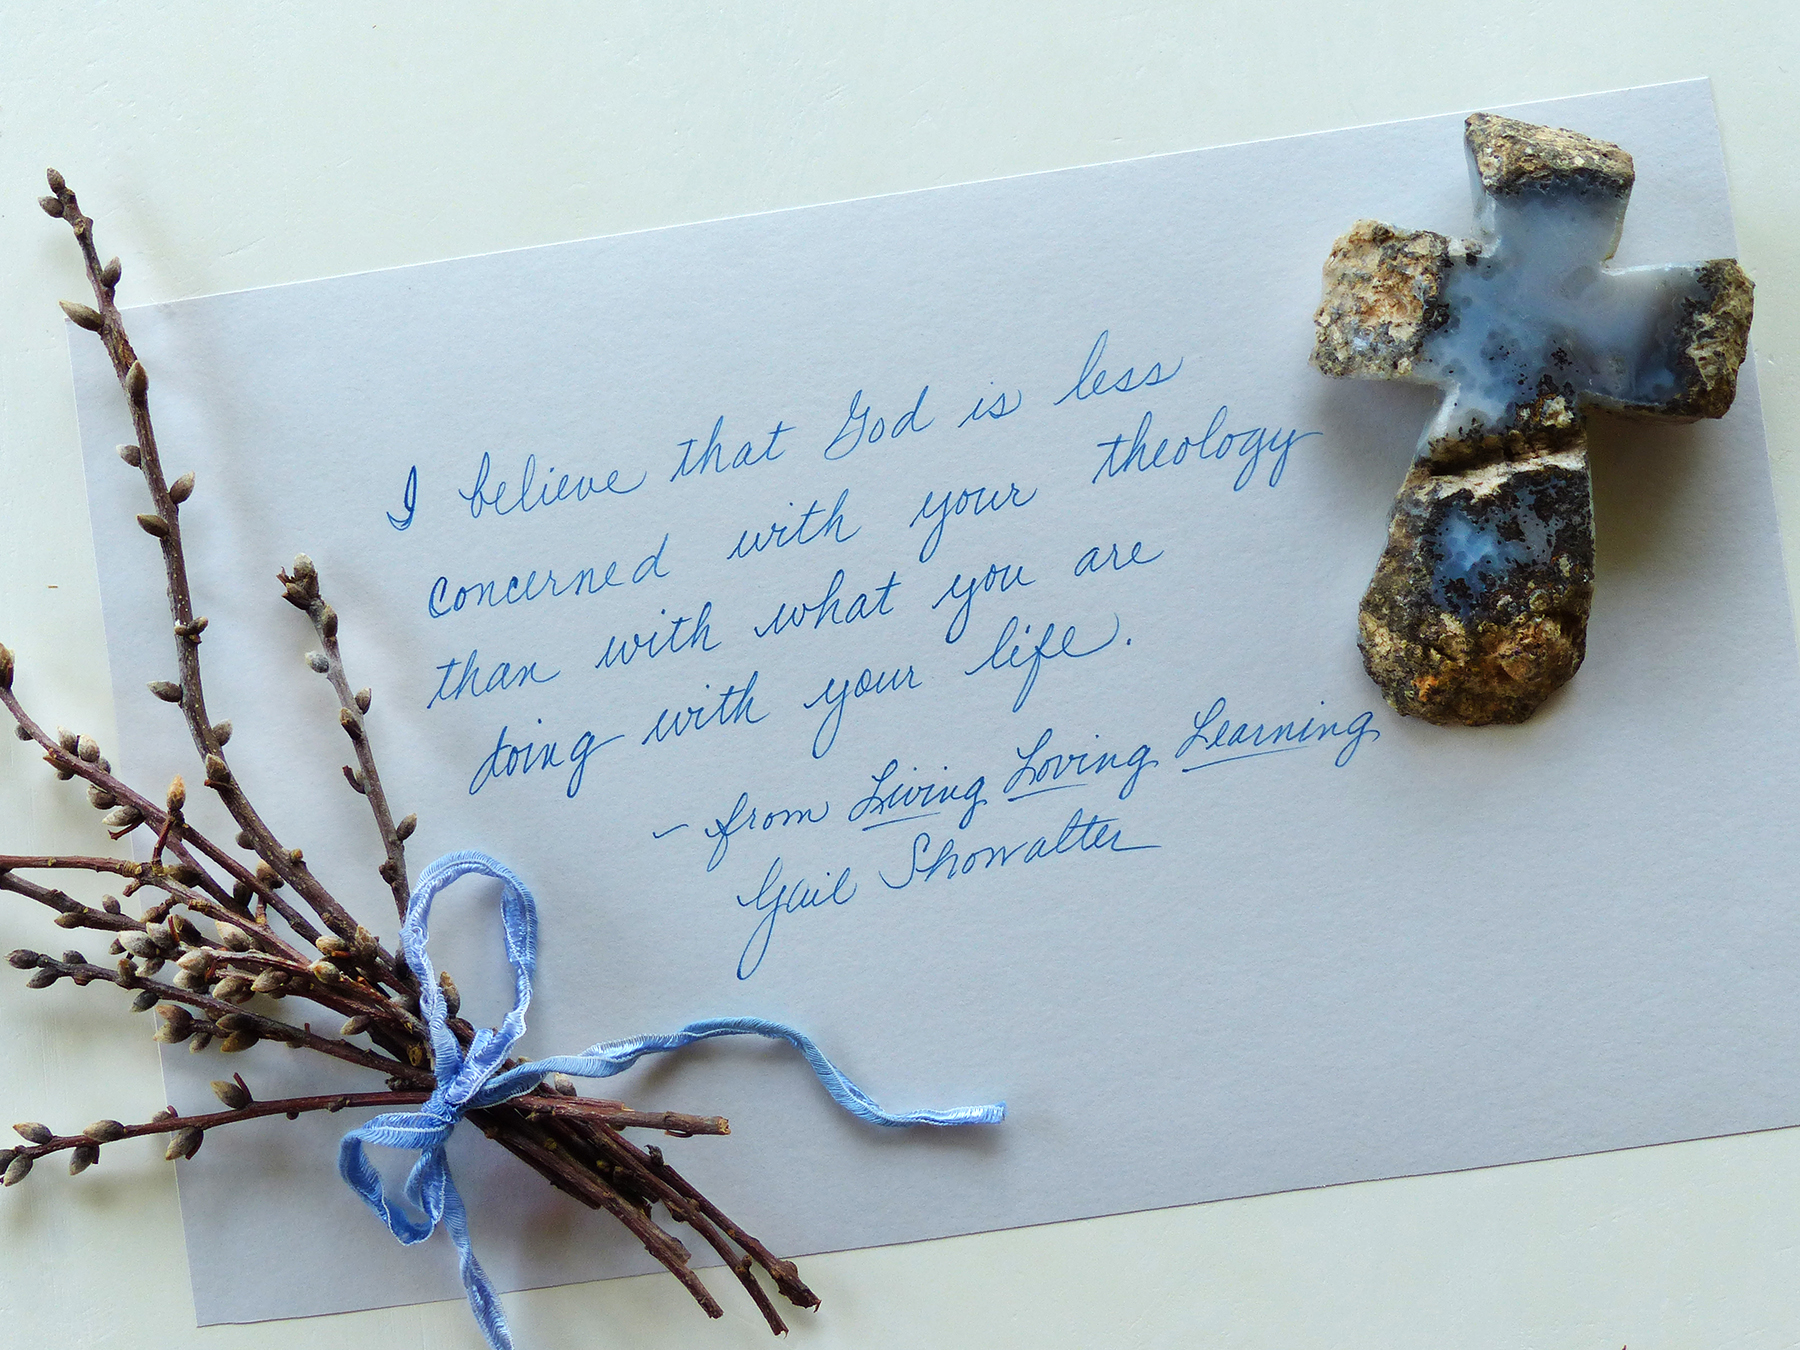 I believe that God is less
concerned with your theology
than with what you are
doing with your life.
~ from Living Loving Learning
Gail Showalter